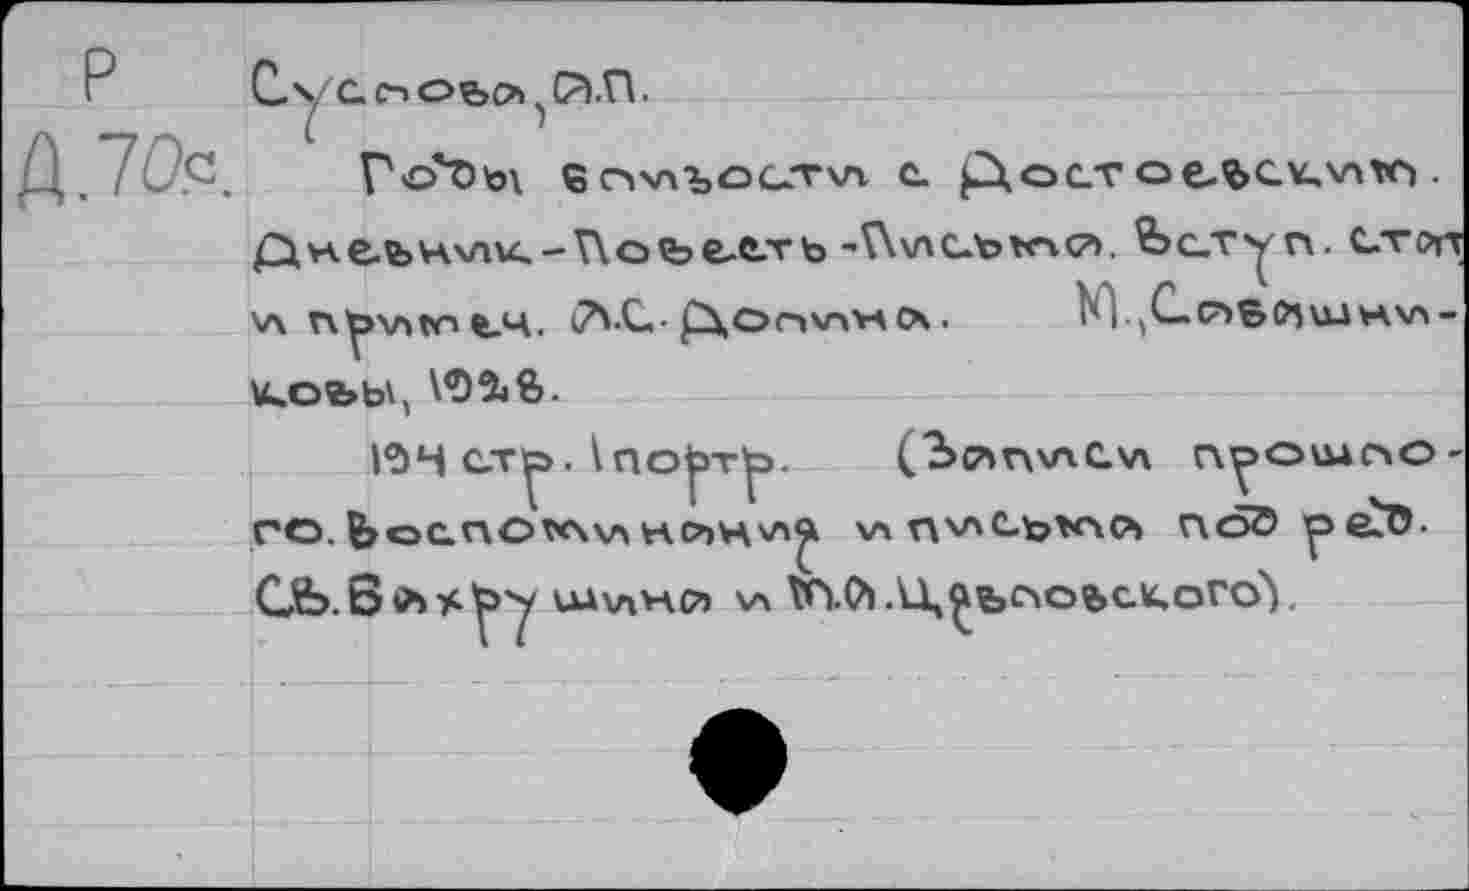 Р
Д.70с.
Суслова, А.П.
Годы близости с Достоевским.
Дневник-Повесть-Письма. Вступ. стат
и примеч. А.С. Долинина. М., Сабашни-
ковы, 1928.
194 стр. 1 портр. (Записи прошло-
го. Воспоминания и письма под ред.
СВ. Бахрушина и М.А. Цявловского).